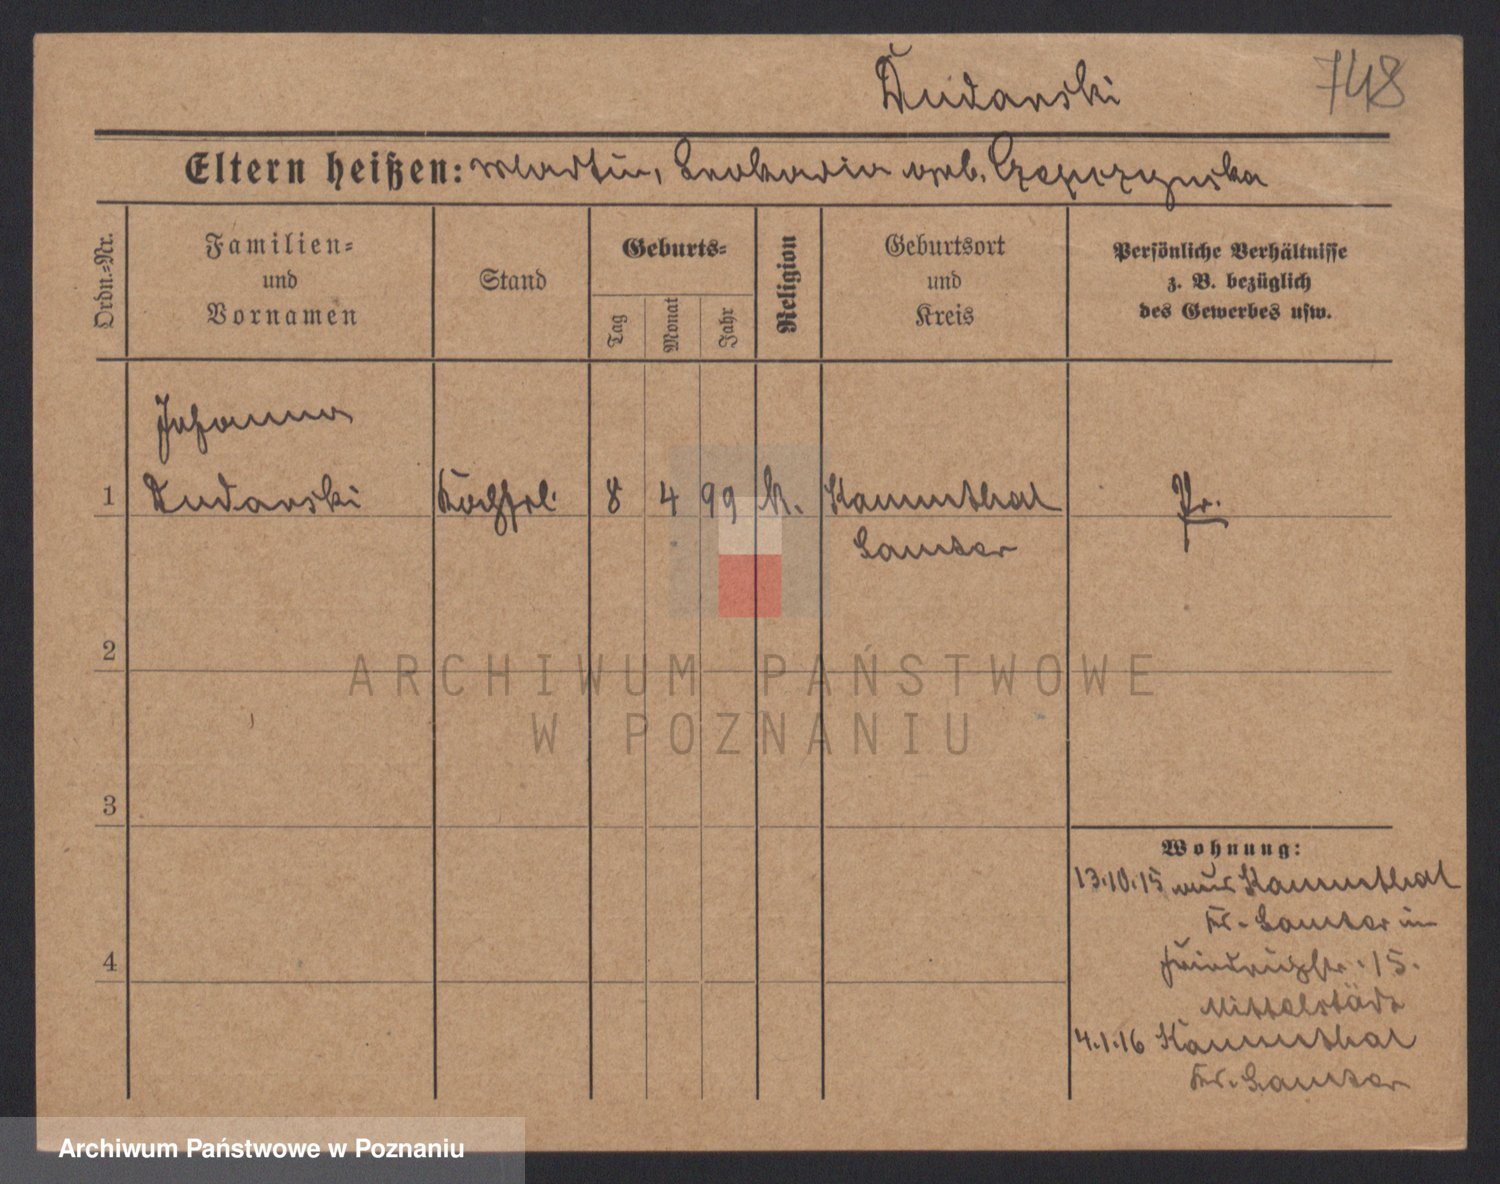 Dudarski 748
Eltern heißen: Martin, Leokadia geb. Czepczynska
Ordn.-Nr.
Familien-
und
Vornamen
Stand
Geburts-
Tag
Monat
Jahr
Religion
Geburtsort
und
Kreis
Persönliche Verhältnisse
z. B. bezüglich
des Gewerbes usw.
Johanna
1 Dudarski Kochfrl. 8 4 99 k. Kammthal Pr.
Samter
2
3
4
Wohnung:
13.10.15 aus Kammthal
Kr. Samter in
Friedrichstr. 15.
Mittelstädt
4.1.16 Kammthal
Kr. Samter
ARCHIWUM PAŃSTWOWE
W POZNANIU
Archiwum Państwowe w Poznaniu